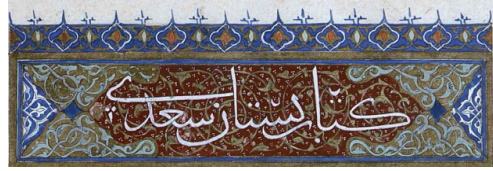 کتاب بستان سعدی